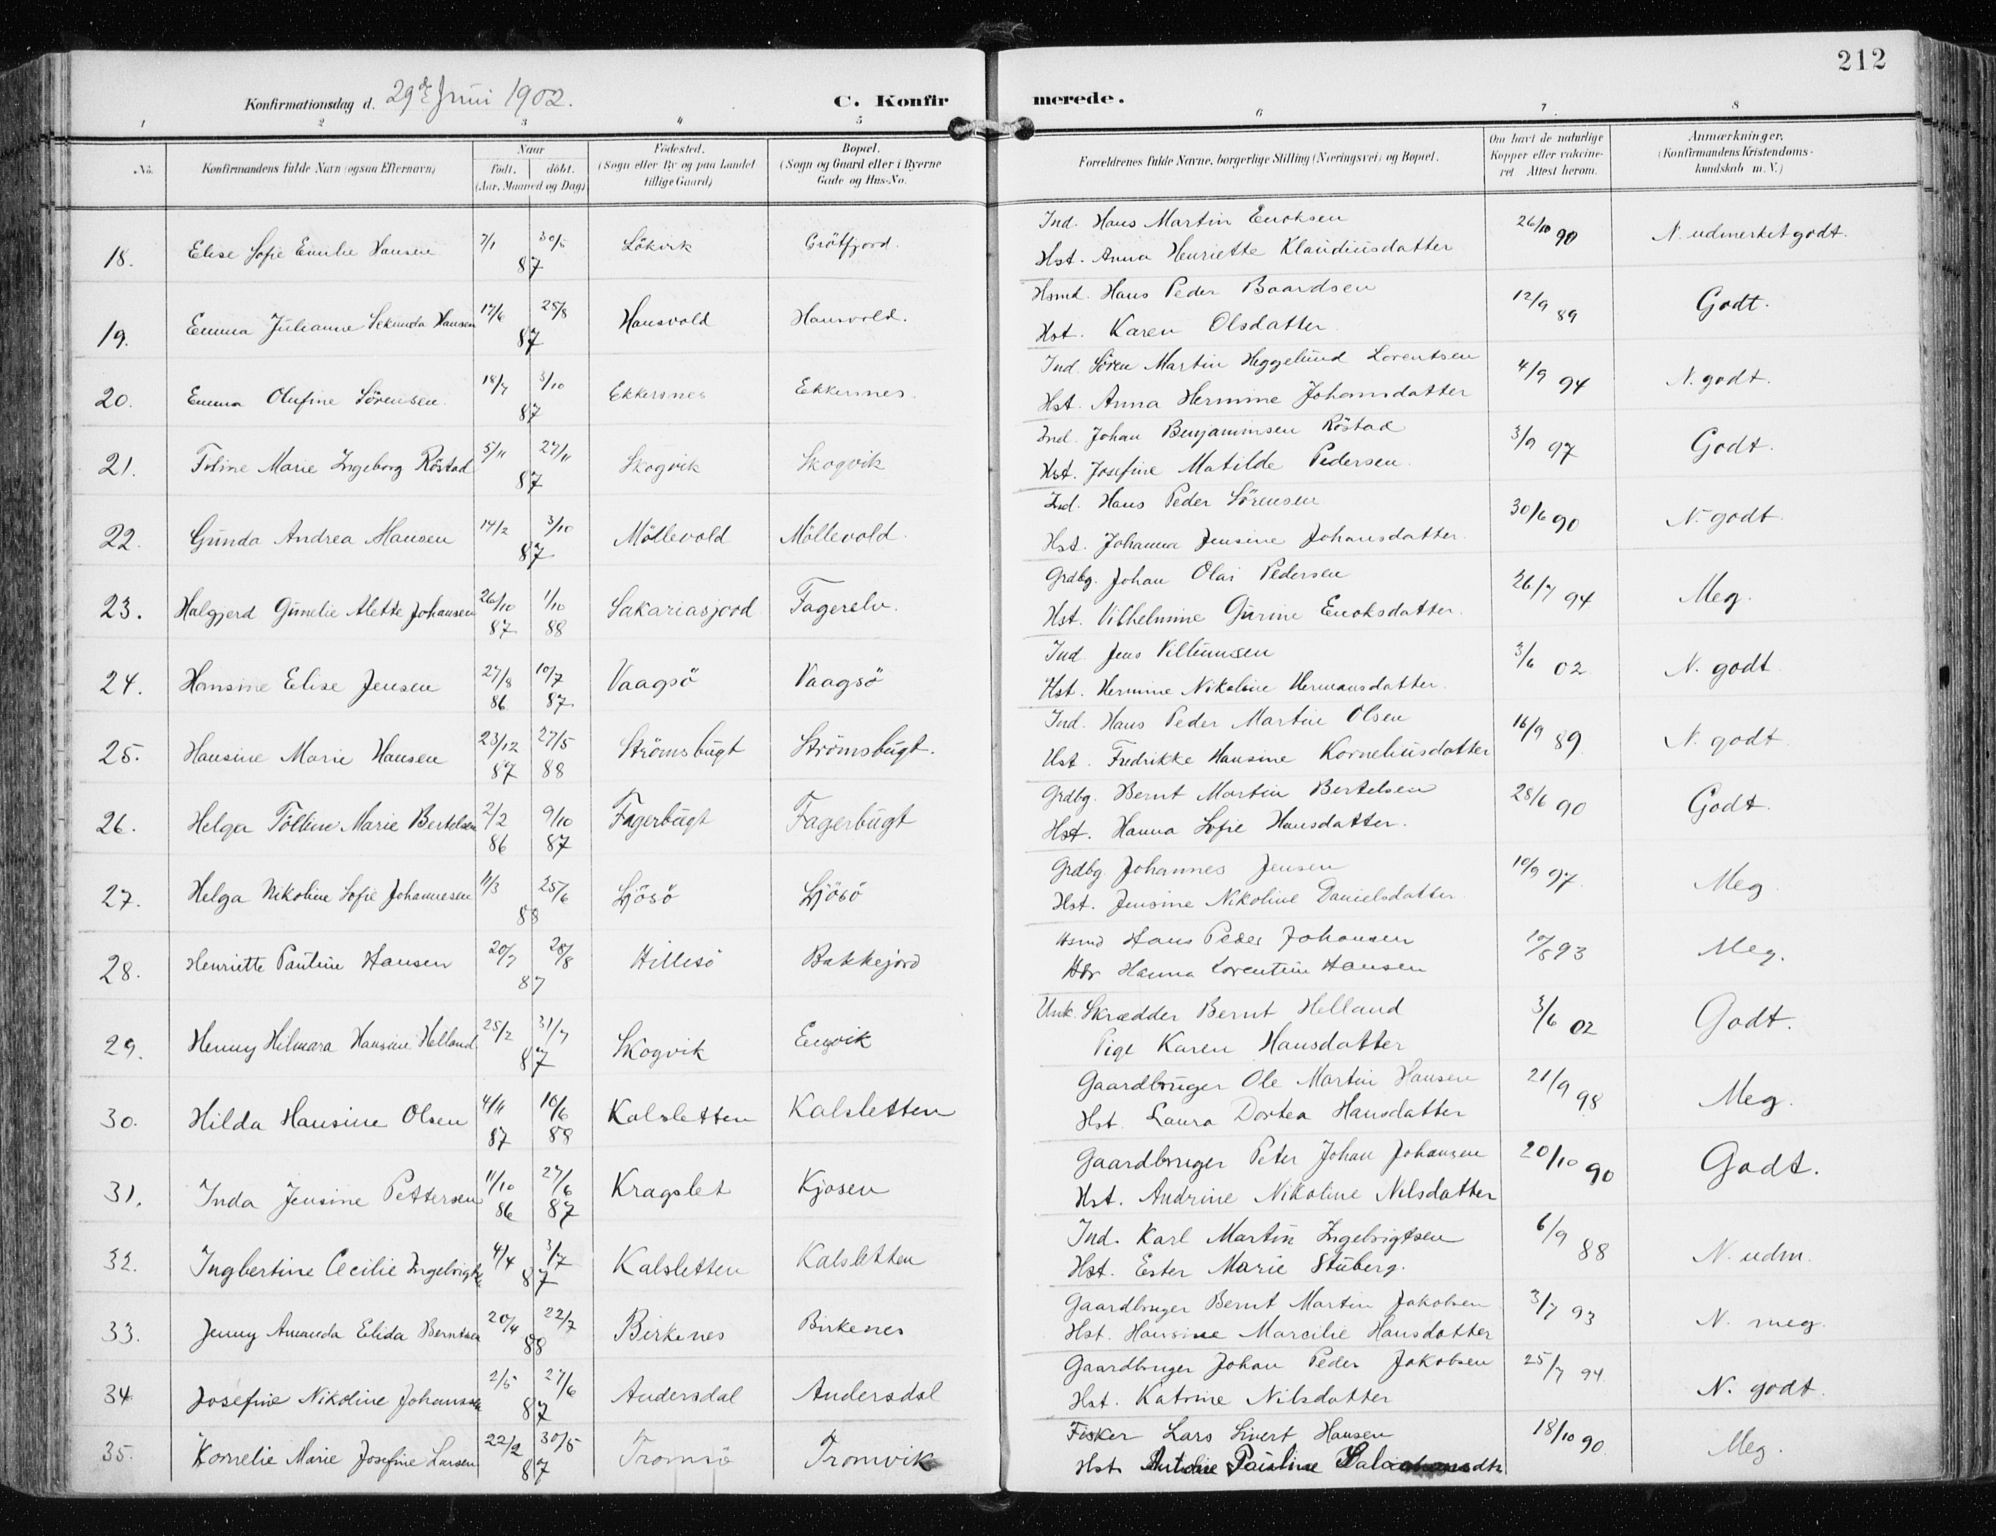 212
Konfirmationsdag d. 29de Juni 1902.
C. Konfirmerede.
1 2 3 4 5 6 7 8
No. Konfirmandens fulde Navn (ogsaa Efternavn) Naar født. døbt. (Aar, Maaned og Dag) Fødested. (Sogn eller By og paa Landet tillige Gaard) Bopæl. (Sogn og Gaard eller i Byerne Gade og Hus-No. Forældrenes fulde Navne, borgerlige Stilling (Næringsvei) og Bopæl. Om havt de naturlige Kopper eller vakcineret Attest herom. Anmærkninger, (Konfirmandens Kristendomskundskab m. V.)
18. Elise Sofie Emilie Hansen 7/1 30/5 87 Lökvik Grötfjord. Ind. Hans Martin Enoksen 26/10 90 N. udmerket godt.
Hst. Anna Henriette Klaudiusdatter
19. Emma Julianne Sekunda Hansen 17/6 25/8 87 Hansvold Hansvold. Hsmd. Hans Peder Baardsen 12/9 89 Godt.
Hst. Karen Olsdatter
20. Emma Olufine Sörensen. 18/7 3/10 87 Ekkersnes Ekkersnes. Ind. Sören Martin Heggelund Lorentsen 4/9 94 N. godt.
Hst. Anna Hermine Johannsdatter
21. Toline Marie Ingeborg Röstad 5/11 27/11 87 Skogvik Skogvik Ind. Johan Benjaminsen Röstad 3/9 97 Godt.
Hst. Josefine Matilde Pedersen.
22. Gunda Andrea Hansen 14/2 3/10 87 Möllevold Möllevold. Ind. Hans Peder Sörensen 30/6 90 N. godt
Hst. Johanna Jensine Johansdatter.
23. Halgjerd Gunelie Alette Johansen 26/10 87 1/10 88 Sakariasjord Fagerelv. Grdbg. Johan Olai Pedersen 26/7 94 Meg.
Hst. Vilhelmine Gurine Enoksdatter.
24. Hansine Elise Jensen 27/8 86 10/7 87 Vaagsö Vaagsö Ind. Jens 3/6 02 N. godt
Hst. Hermine Nikoline Hermansdatter.
25. Hansine Marie Hansen 23/12 87 27/5 88 Strömsbugt Strömsbugt. Ind. Hans Peder Martin Olsen 16/9 89. N. godt
Hst. Fredrikke Hansine Korneliusdatter
26. Helga Marie Bertelsen 2/2 86 9/10 87 Fagerbugt Fagerbugt Grdbg. Bernt Martin Bertelsen 28/6 90 Godt.
Hst. Hanna Sofie Hansdatter.
27. Helga Nikoline Sofie Johannesen 11/3 25/6 88 Ljösö Ljösö Grdbg Johannes Jensen 10/9 97. Meg
Hst. Jensine Nikoline Danielsdatter
28. Henriette Pauline Hansen 20/7 28/8 87 Hillesö Bakkejord Hsmd Hans Peder Johansen 10/8 93 Meg.
Hanna Lorentine Hansen
29. Henny Hilmara Hansine Helland. 25/2 31/7 87 Skogvik Engvik Unk. Skrædder Bernt Helland 3/6 02 Godt.
Pige Karen Hansdatter
30. Hilda Hansine Olsen 4/11 87 16/6 88 Kalsletten Kalsletten Gaardbruger Ole Martin Hansen 21/9 98 Meg.
Hst. Laura Dortea Hansdatter
31. Inda Jensine Pettersen 11/10 86 27/6 87 Kragslet Kjosen Gaardbruger Peter Johan Johansen 20/10 90 Godt.
Hst. Andrine Nikoline Nilsdatter
32. Ingbertine Cecilie Ingebrigts 4/4 3/7 87 Kalsletten Kalsletten Ind. Karl Martin Ingebrigtsen 6/9 88 N. udm.
Hst. Ester Marie Stuberg.
33. Jenny Amanda Elida Berntsen 20/4 22/7 88 Birkenes Birkenes Gaardbruger Bernt Martin Jakobsen 3/7 93 N. meg.
Hst. Hansine Marcilie Hansdatter
34 Josefine Nikoline Johansen 2/5 27/6 87 Andersdal Andersdal Gaardbruger Johan Peder Jakobsen 25/7 94 N. godt.
Hst. Katrine Nilsdatter
35. Kornelie Marie Josefine Larsen 22/2 30/5 87 Tromsö Tromvik Fisker Lars Sivert Hansen 18/10 90 Meg.
Hst Pauline